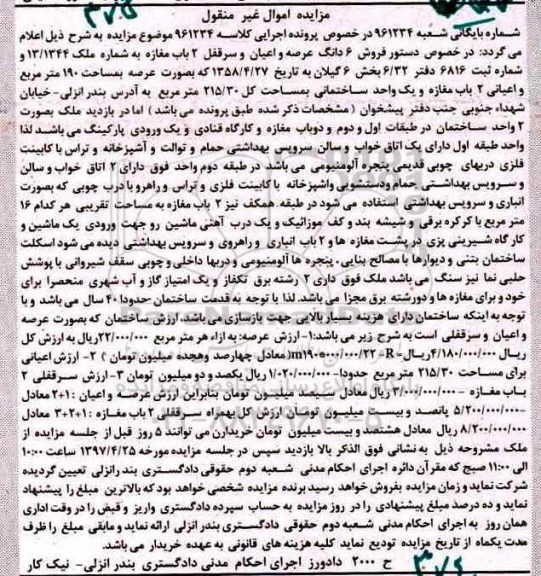 مزایده اموال غیر منقول
شماره بایگانی شعبه ۹۶۱۲۳۴ در خصوص پرونده اجرایی کلاسه ۹۶۱۲۳۴ موضوع مزایده به شرح ذیل اعلام
می گردد: در خصوص دستور فروش ۶ دانگ عرصه و اعیان و سرقفل ۲ باب مغازه به شماره ملک ۱۳/۱۳۴۴ و
شماره ثبت ۶۸۱۶ دفتر ۶/۳۲ بخش ۶ گیلان به تاریخ ۱۳۵۸/۴/۲۷ که بصورت عرصه بمساحت ۱۹۰ متر مربع
و اعیانی ۲ باب مغازه و یک واحد ساختمانی بمساحت کل ۲۱۵/۳۰ متر مربع به آدرس بندر انزلی- خیابان
شهداء جنوبی جنب دفتر پیشخوان (مشخصات ذکر شده طبق پرونده می باشد) اما در بازدید ملک بصورت
۲ واحد ساختمان در طبقات اول و دوم و دوباب مغازه و کارگاه قنادی و یک ورودی پارکینگ می باشد لذا
واحد طبقه اول دارای یک اتاق خواب و سالن سرویس بهداشتی حمام و توالت و آشپزخانه و تراس با کابینت
فلزی دربهای چوبی قدیمی پنجره آلومنیومی می باشد در طبقه دوم واحد فوق دارای ۲ اتاق خواب و سالن
و سرویس بهداشتی حمام ودستشویی واشپزخانه با کابینت فلزی و تراس و راهرو با درب چوبی که بصورت
انباری و سرویس بهداشتی استفاده می شود در طبقه همکف نیز ۲ باب مغازه به مساحت تقریبی هر کدام ۱۶
متر مربع با کرکره برقی و شیشه بند و کف موزائیک و یک درب آهنی ماشین رو جهت ورودی یک ماشین و
کار گاه شیرینی پزی در پشت مغازه ها و ۲ باب انباری و راهروی و سرویس بهداشتی دیده می شود اسکلت
ساختمان بتنی و دیوارها با مصالح بنایی، پنجره ها آلومنیومی و دربها داخلی و چوبی سقف شیروانی با پوشش
حلبی نما نیز سنگ می باشد ملک فوق داری ۲ رشته برق تکفاز و یک امتیاز گاز و آب شهری منحصرا برای
خود و برای مغازه ها و دورشته برق مجزا می باشد. لذا با توجه به قدمت ساختمان -حدودا ۴۰ سال می باشد و با
توجه به اینکه ساختمان دارای هزینه بسیار بالایی جهت بازسازی می باشد. ارزش ساختمان که بصورت عرصه
و اعیان و سرقفلی است به شرح زیر می باشد:۱- ارزش عرصه: به ازاء هر متر مربع ۲۲/۰۰۰/۰۰۰ ریال به ارزش کل
ریال ۴/۱۸۰/۰۰۰/۰۰۰ریال=R= ۲۲/۰۰۰/۰۰۰×۱۹۰m(معادل چهارصد وهجده میلیون تومان) ۲- ارزش اعیانی
برای مساحت ۲۱۵/۳۰ متر مربع حدودا- ۱/۰۲۰/۰۰۰/۰۰۰ ریال یکصد و دو میلیون تومان ۳- ارزش سرقفلی ۲
باب مغازه - ۳/۰۰۰/۰۰۰/۰۰۰ ریال معادل سیصد میلیون تومان بنابراین ارزش عرصه و اعیان :۱+۲ معادل
-۵/۲۰۰/۰۰۰/۰۰۰ پانصد و بیست میلیون تومان ارزش کل بهمراه سرقفلی ۲ باب مغازه :۱+۲+۳ معادل
۸/۲۰۰/۰۰۰/۰۰۰ ریال معادل هشتصد و بیست میلیون تومان خریدارن می توانند ۵ روز قبل از جلسه مزایده از
ملک مشروحه ذیل به نشانی فوق الذکر بالا بازدید سپس در جلسه مزایده مورخه ۱۳۹۷/۴/۲۵ ساعت ۱۰:۰۰
الی ۱۱:۰۰ صبح که مقر آن دائره اجرای احکام مدنی شعبه دوم حقوقی دادگستری بندر انزلی تعیین گردیده
شرکت نماید و زمان مزایده بفروش خواهد رسید برنده مزایده شخصی خواهد بود که بالاترین مبلغ را پیشنهاد
نماید و ده درصد مبلغ پیشنهادی را در روز مزایده به حساب سپرده دادگستری واریز و قبض را در وقت اداری
همان روز به اجرای احکام مدنی شعبه دوم حقوقی دادگستری بندر انزلی ارائه نماید و مابقی مبلغ را ظرف
مدت یکماه از تاریخ مزایده تودیع نماید کلیه هزینه های قانونی به عهده خریدار می باشد.
ح ۲۰۰۰ دادورز اجرای احکام مدنی دادگستری بندر انزلی- نیک کار